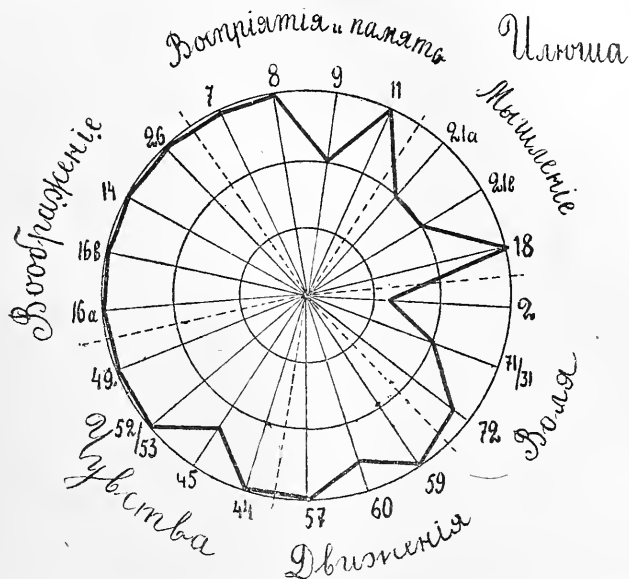 Воспріятія и память
Илюша
Мышленіе
Воображеніе
Воля
Чувства
Движенія
8
9
11
21а
21е
18
2
71/31
72
59
60
57
44
45
52/53
49
16а
16в
14
26
7